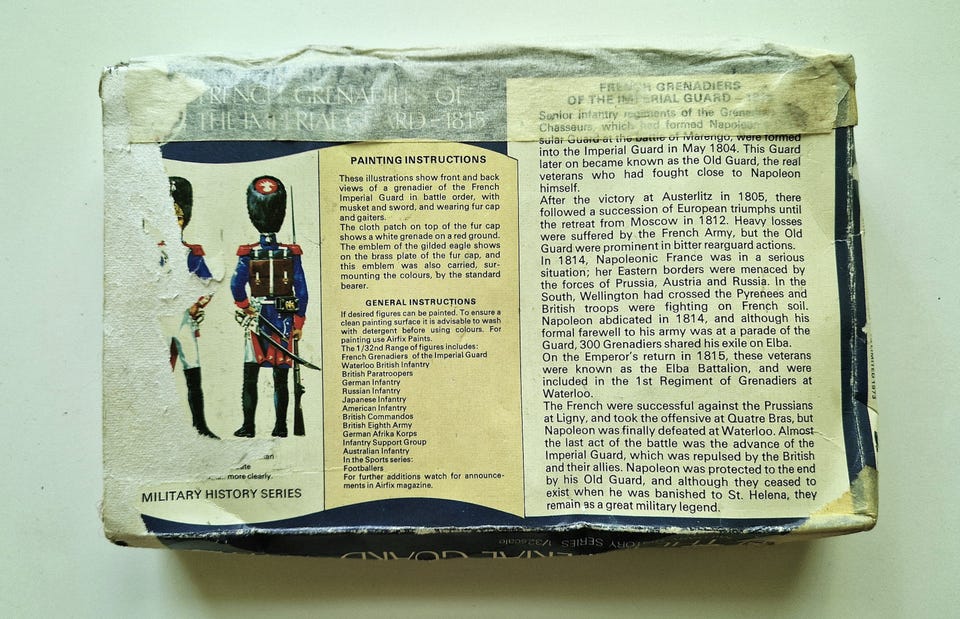 FRENCH GRENADIERS OF
THE IMPERIAL GUARD - 1815
an
te
more clearly.
MILITARY HISTORY SERIES
PAINTING INSTRUCTIONS
These illustrations show front and back
views of a grenadier of the French
Imperial Guard in battle order, with
musket and sword, and wearing fur cap
and gaiters.
The cloth patch on top of the fur cap
shows a white grenade on a red ground.
The emblem of the gilded eagle shows
on the brass plate of the fur cap, and
this emblem was also carried, sur-
mounting the colours, by the standard
bearer.
GENERAL INSTRUCTIONS
If desired figures can be painted. To ensure a
clean painting surface it is advisable to wash
with detergent before using colours. For
painting use Airfix Paints.
The 1/32nd Range of figures includes:
French Grenadiers of the Imperial Guard
Waterloo British Infantry
British Paratroopers
German Infantry
Russian Infantry
Japanese Infantry
American Infantry
British Commandos
British Eighth Army
German Afrika Korps
Infantry Support Group
Australian Infantry
In the Sports series:
Footballers
For further additions watch for announce-
ments in Airfix magazine.
FRENCH GRENADIERS
OF THE IMPERIAL GUARD - 1
Senior infantry regiments of the Grena
Chasseurs, which had formed Napole
sular Guard at the battle of Marengo, were formed
into the Imperial Guard in May 1804. This Guard
later on became known as the Old Guard, the real
veterans who had fought close to Napoleon
himself.
After the victory at Austerlitz in 1805, there
followed a succession of European triumphs until
the retreat from Moscow in 1812. Heavy losses
were suffered by the French Army, but the Old
Guard were prominent in bitter rearguard actions.
In 1814, Napoleonic France was in a serious
situation; her Eastern borders were menaced by
the forces of Prussia, Austria and Russia. In the
South, Wellington had crossed the Pyrenees and
British troops were fighting on French soil.
Napoleon abdicated in 1814, and although his
formal farewell to his army was at a parade of the
Guard, 300 Grenadiers shared his exile on Elba.
On the Emperor's return in 1815, these veterans
were known as the Elba Battalion, and were
included in the 1st Regiment of Grenadiers at
Waterloo.
The French were successful against the Prussians
at Ligny, and took the offensive at Quatre Bras, but
Napoleon was finally defeated at Waterloo. Almost
the last act of the battle was the advance of the
Imperial Guard, which was repulsed by the British
and their allies. Napoleon was protected to the end
by his Old Guard, and although they ceased to
exist when he was banished to St. Helena, they
remain as a great military legend.
LIMITED 1973
ERIAL GUARD
TORY SERIES 1/32 scale